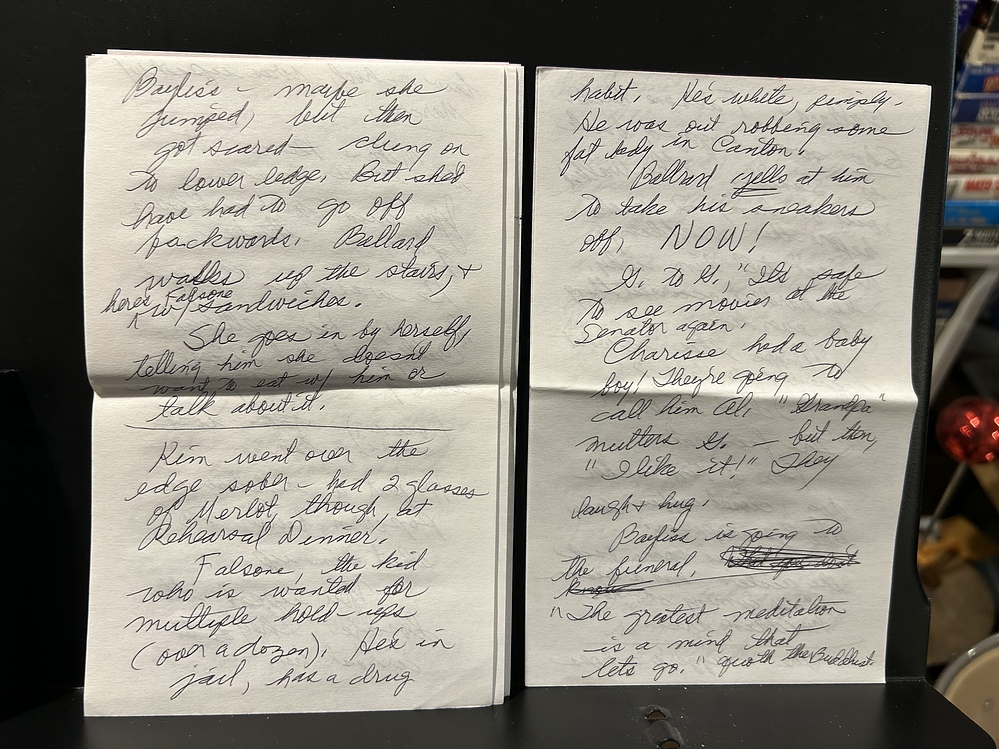 Bayliss - maybe she
jumped, but then
got scared - clung on
to lower ledge. But she'd
have had to go off
backwards. Ballard
walks up the stairs, +
here's Falsone
w/ sandwiches.
She goes in by herself,
telling him she doesn't
want to eat w/ him or
talk about it.
Kim went over the
edge sober - had 2 glasses
of Merlot, though, at
Rehearsal Dinner.
Falsone, the kid
who is wanted for
multiple hold ups
(over a dozen). He's in
jail, has a drug
habit. He's white, pimply.
He was out robbing some
fat lady in Canton.
Ballard yells at him
to take his sneakers
off. NOW!
G. to G., "It's safe
to see movies at the
Senator again.
Charisse had a baby
boy! They're going to
call him Al. "Grandpa"
mutters G. - but then,
"I like it!" They
laugh + hug.
Bayliss is going to
the funeral.
"The greatest meditation
is a mind that
lets go." quoth the Buddhist.